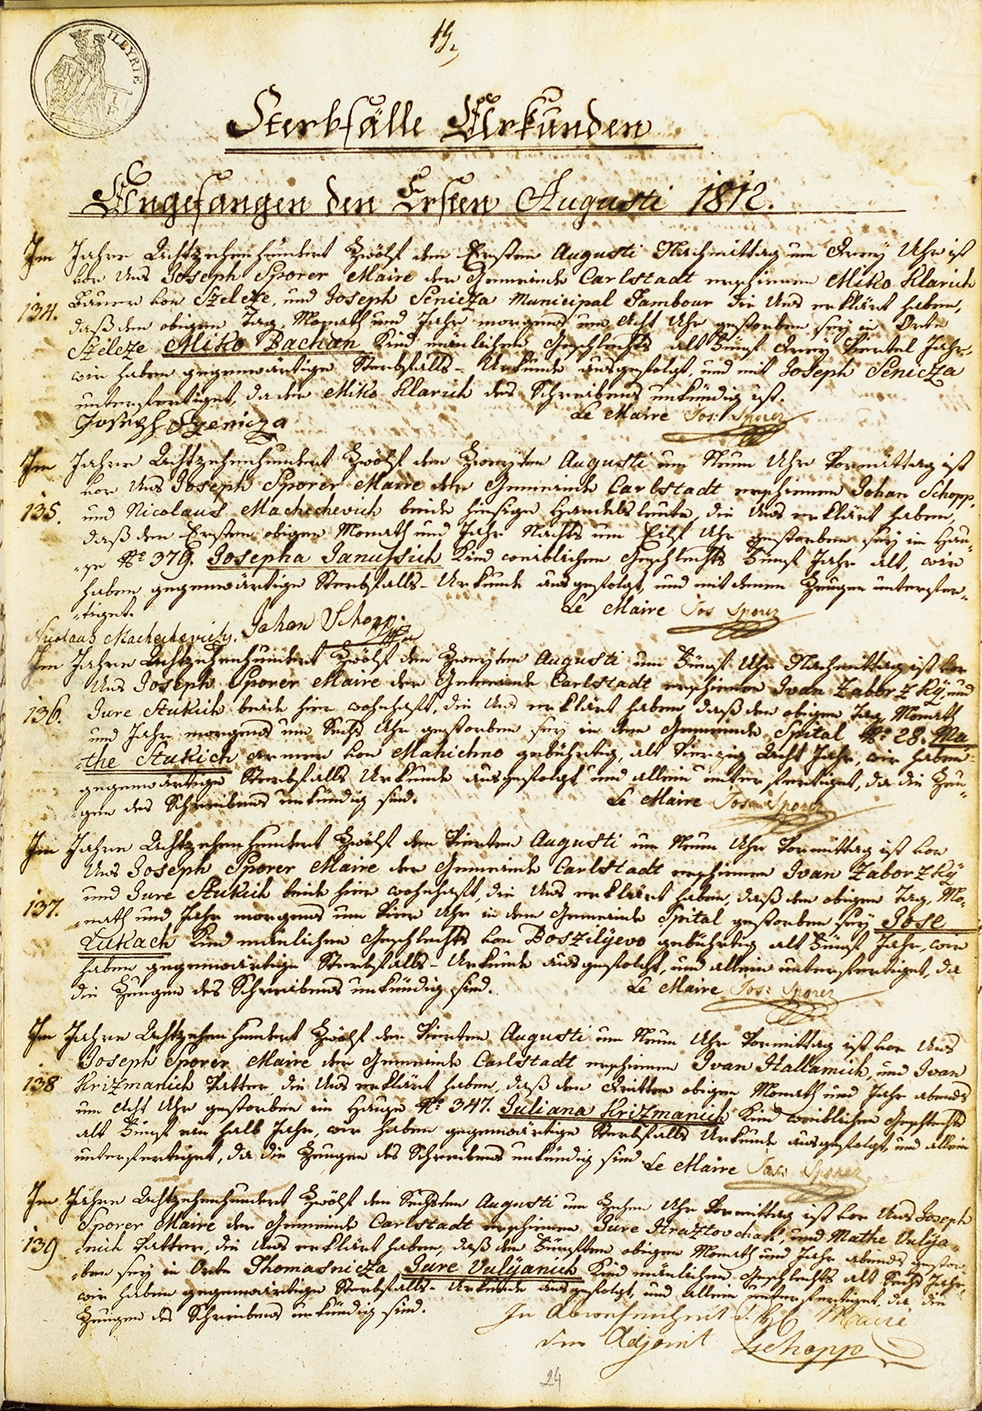 ILLYRIE
15.
Sterbfälle Urkunden
Angefangen den Ersten Augusti 1812.
Im Jahre Achtzehenhundert Zwölf den Ersten Augusti Nachmittag um Drey Uhr ist
vor Uns Joseph Sporer Maire der Gemeinde Carlstadt erschienen Miko Klarich
134. Bauer von Szelcze, und Joseph Senicza Municipal Tambour die Uns erklärt haben,
daß den obigen Tag, Monath und Jahr morgens um Acht Uhr gestorben sey in Orte
Szelcze Miko Bachan Kind mänlichen Geschlechts alt Fünf Drey Viertel Jahr,
wir haben gegenwärtige Sterbfalls-Urkunde ausgefolgt, und mit Joseph Senicza
unterfertiget, da der Miko Klarich des Schreibens unkündig ist.
Joseph Szenicza Le Maire Jos: Sporer
Im Jahre Achtzehenhundert Zwölf den Zweyten Augusti um Neun Uhr Vormittag ist
vor Uns Joseph Sporer Maire der Gemeinde Carlstadt erschienen Johan Schopp,
135. und Nicolaus Machichevich beide hiesige Handelsleute, die Uns erklärt haben,
daß den Ersten obigen Monath und Jahr Nachts um Eilf Uhr gestorben sey in Hau-
-se No 379. Josepha Janussich Kind weiblichen Geschlechts Fünf Jahr alt, wir
haben gegenwärtige Sterbfalls-Urkunde ausgefolgt, und mit denen Zeugen unterfer-
-tiget. Le Maire Jos Sporer
Nicolaus Machichevich. Johan Schopp
Im Jahre Achtzehenhundert Zwölf den Zweyten Augusti um Fünf Uhr Nachmittag ist vor
Uns Joseph Sporer Maire der Gemeinde Carlstadt erschienen Ivan Zaborzky und
136. Jure Stukich beide hier wohnhaft, die Uns erklärt haben daß den obigen Tag Monath
und Jahr morgens um Sechs Uhr gestorben sey in dem Gemeinde Spital No 28. Ma-
-the Stukich armer von Mahichno gebührtig, alt Vierzig Acht Jahr, wir haben
gegenwärtige Sterbfalls Urkunde ausgefolgt und allein unterfertiget, da die Zeu-
gen des Schreibens unkündig sind. Le Maire Jos: Sporer
Im Jahre Achtzehenhundert Zwölf den Vierten Augusti um Neun Uhr Vormittag ist vor
Uns Joseph Sporer Maire der Gemeinde Carlstadt erschienen Ivan Zaborzky
137. und Jure Stukich beide hier wohnhaft, die Uns erklärt haben, daß den obigen Tag, Mo-
-nath und Jahr morgens um Vier Uhr in den Gemeinde Spital gestorben sey Jose
Lukach Kind mänlichen Geschlechts von Boszilyevo gebührtig alt Fünf Jahr, wir
haben gegenwärtige Sterbfalls-Urkunde ausgefolgt, und allein unterfertiget, da
die Zeugen des Schreibens unkündig sind. Le Maire Jos: Sporer
Im Jahre Achtzehenhundert Zwölf den Vierten Augusti um Neun Uhr Vormittag ist vor Uns
Joseph Sporer Maire der Gemeinde Carlstadt erschienen Ivan Hallamich, und Ivan
138 Krizmanich Vatter, die Uns erklärt haben, daß den Dritten obigen Monath und Jahr abends
um Acht Uhr gestorben im Hause No 347. Juliana Krizmanich Kind weiblichen Geschlechts
alt Fünf ein halb Jahr, wir haben gegenwärtige Sterbfalls Urkunde ausgefolgt, und allein
unterfertiget, da die Zeugen des Schreibens unkündig sind Le Maire Jos: Sporer
Im Jahre Achtzehenhundert Zwölf den Sechsten Augusti um Zehn Uhr Vormittag ist vor Uns Joseph
Sporer Maire der Gemeinde Carlstadt erschienen Jure Hraztovchak, und Mathe Vulja-
139 -nich Vatter, die Uns erklärt haben, daß den Fünften obigen Monath und Jahr abends gestor-
-ben sey in Orte Thomasnicza Jure Vulijanich Kind mänlichen Geschlechts alt Sechs Jahr
wir haben gegenwärtige Sterbfalls-Urkunde ausgefolgt, und allein unterfertiget, da die
Zeugen des Schreibens unkündig sind. In Abwesenheit d. H. Maire
der Adjoint Schopp
24